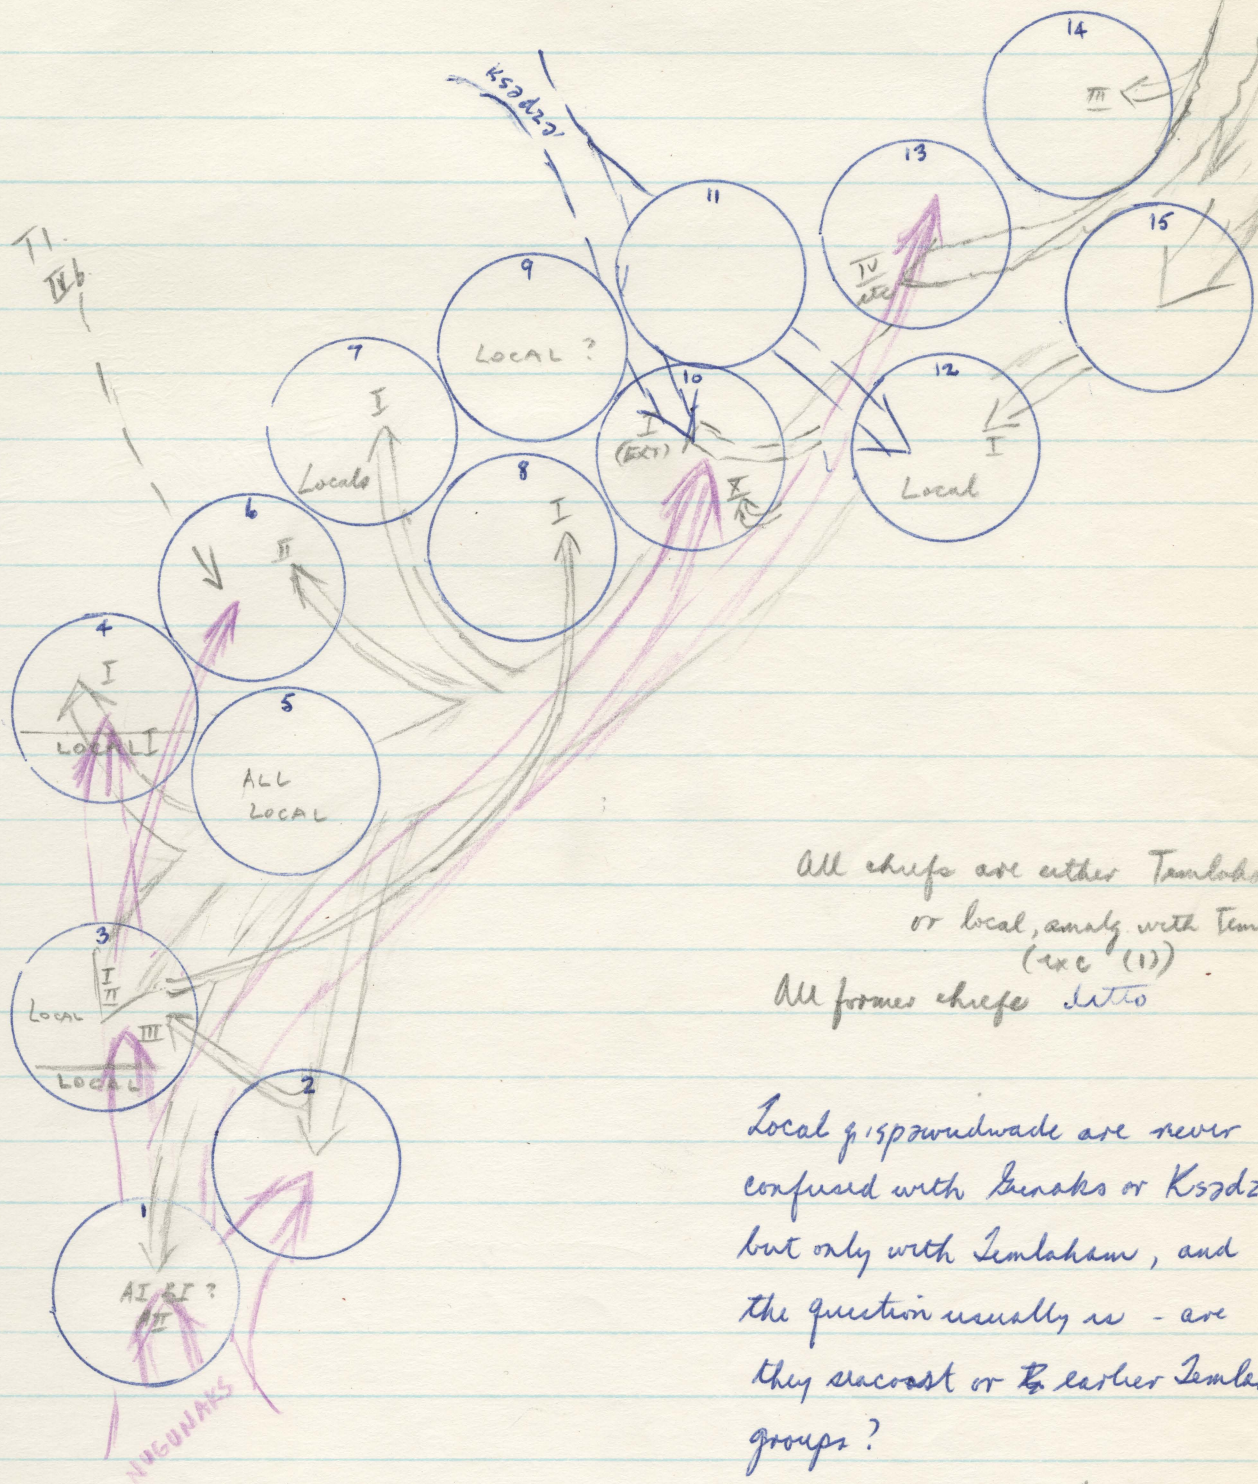 14
III
13
IV
etc
15
Ksədzə'
11
T1
IVb
9
LOCAL ?
7
I
Locals
10
I
(EXT)
12
I
Local
8
I
6
II
4
I
LOCAL I
5
ALL
LOCAL
3
I
II
LOCAL
III
LOCAL
2
1
AI BI ?
II
NUGUNAKS
All chiefs are either Temlaha
or local, amalg with Tem
(exc (1))
All former chiefs ditto
Local are never
confused with Gunaks or Ksədz
but only with Temlaham, and
the question usually is - are
they seacoast or earlier Temla
groups?